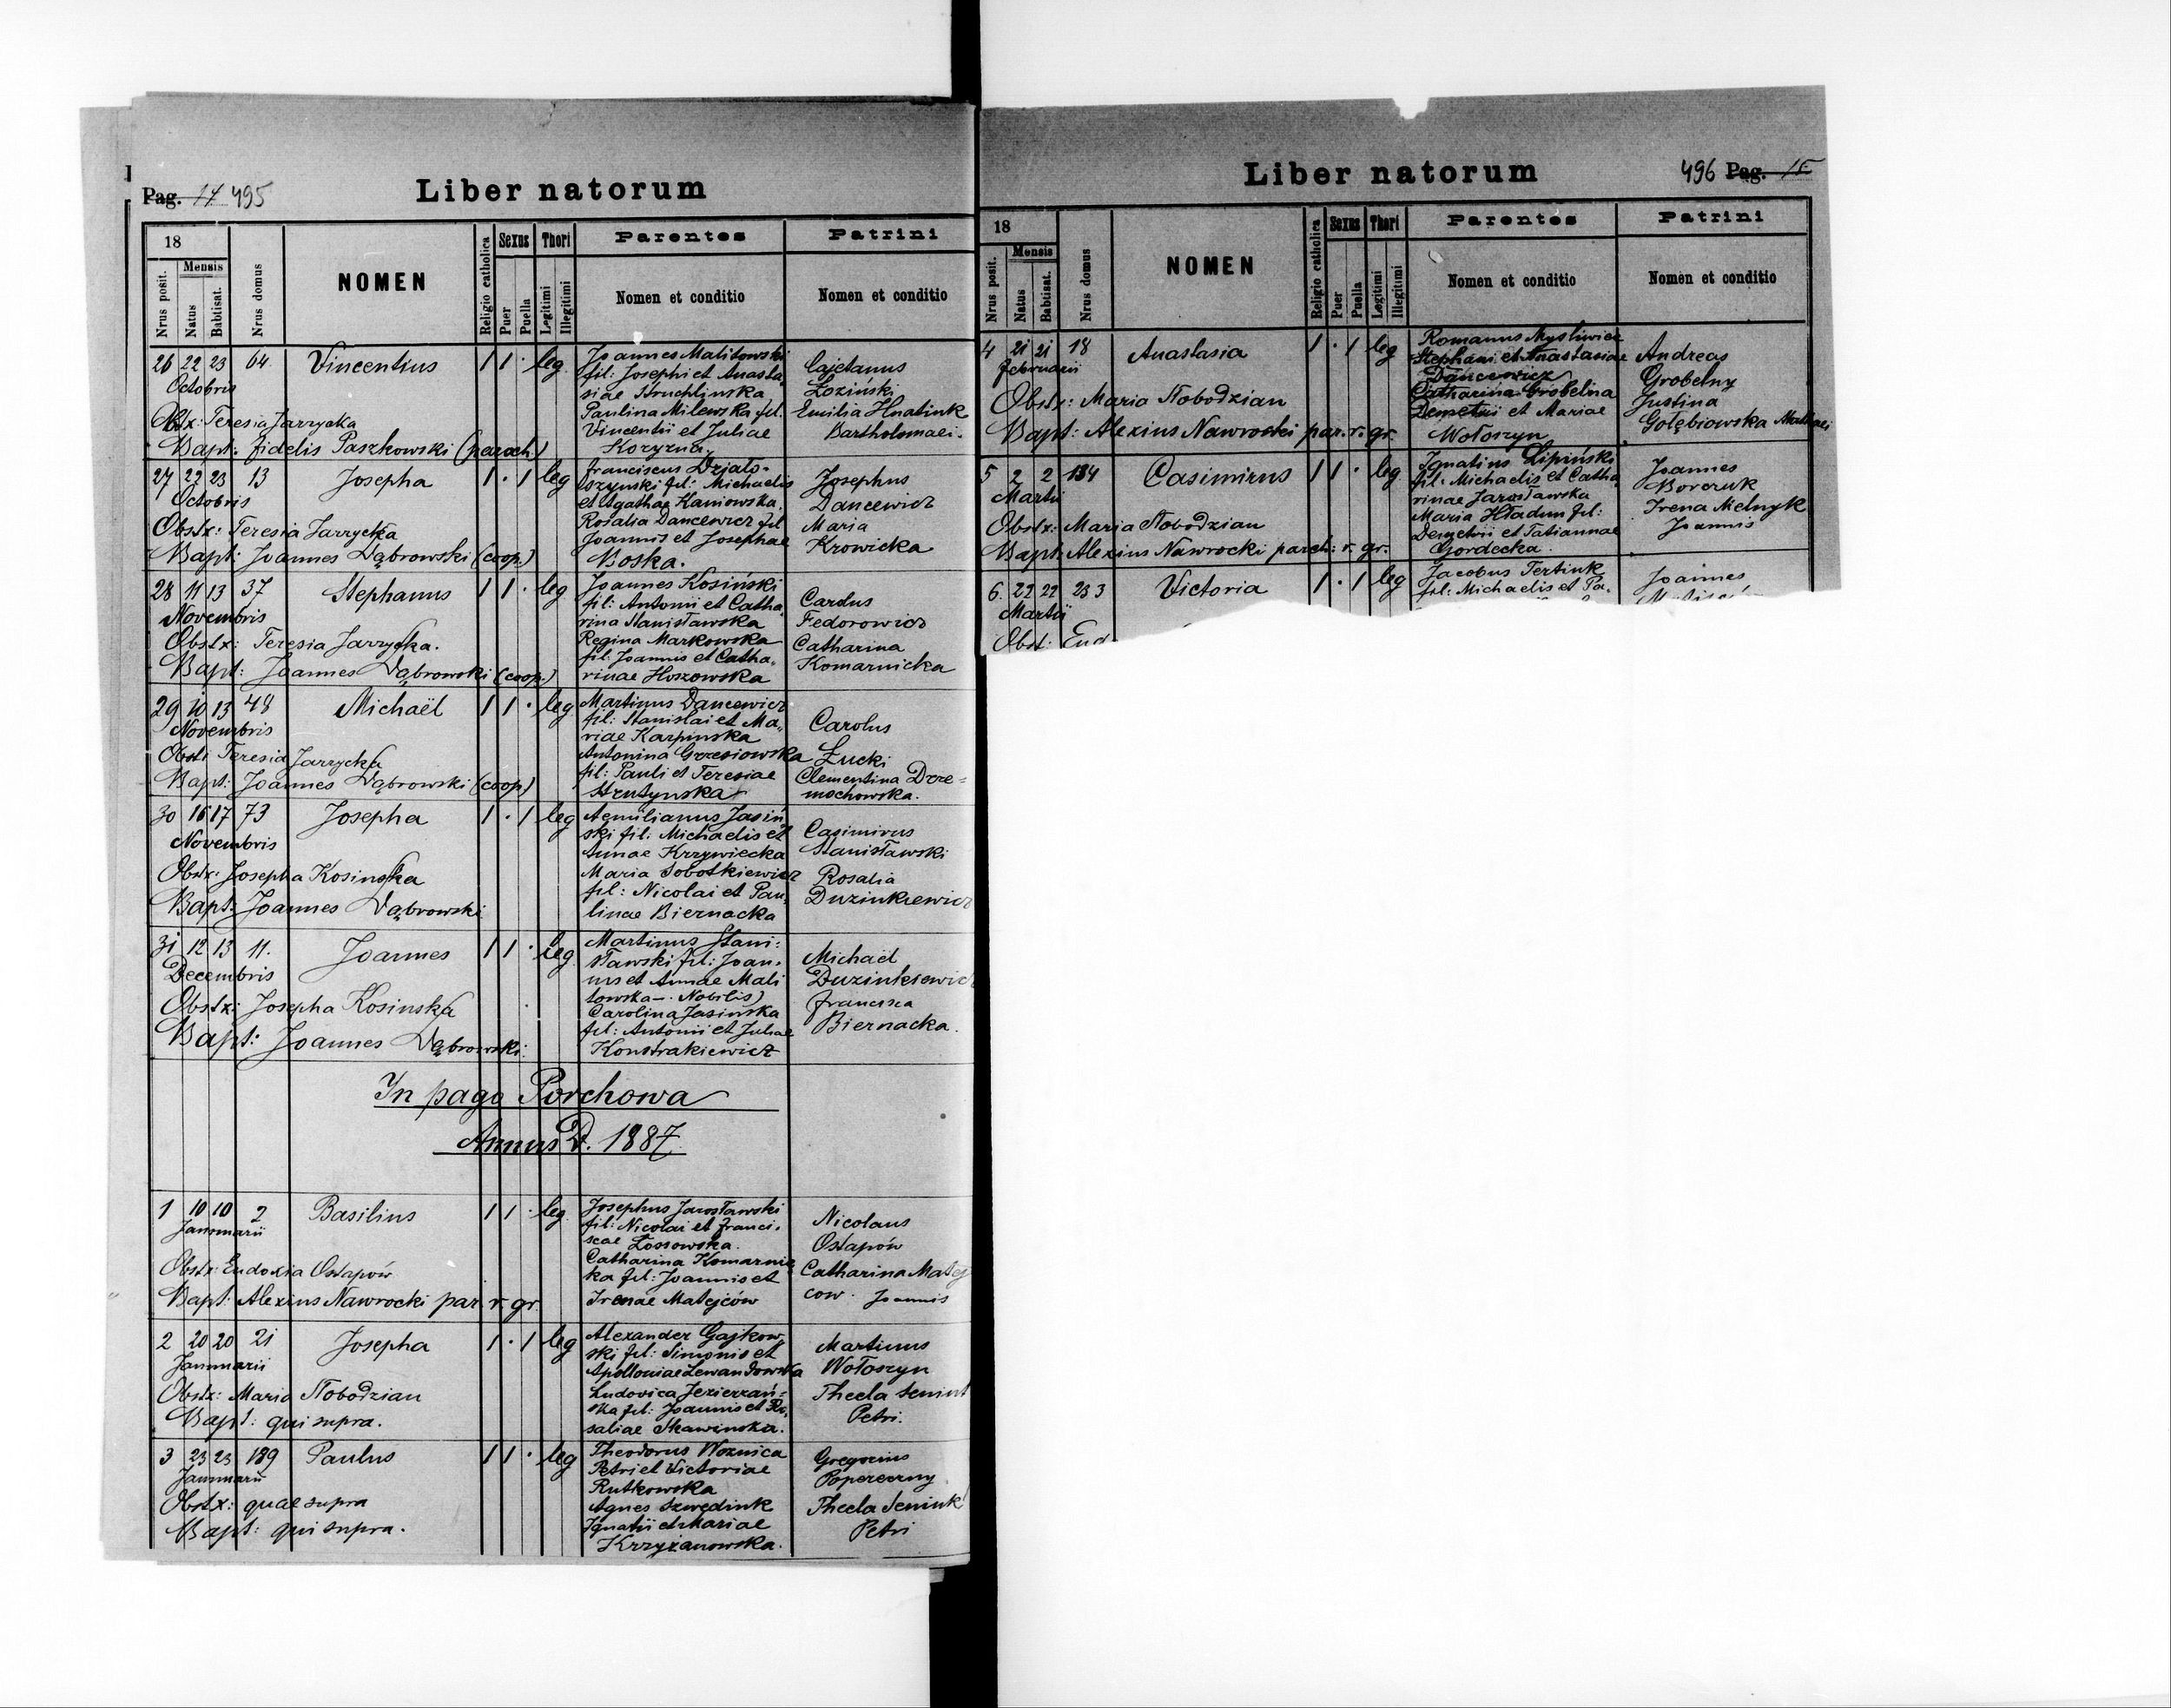 Pag. 14 495
Liber natorum
18
Nrus posit.
Mensis
Natus
Babtisat.
Nrus domus
NOMEN
Religio catholica
Sexus
Puer
Puella
Thori
Legitimi
Illegitimi
Parentes
Nomen et conditio
Patrini
Nomen et conditio
26 22 23 64 Vincentius 1 1 · leg
Octobris
Obstx: Teresia Jarrycka
Bapt: Fidelis Paszkowski (paroch.)
Joannes Malitowski
fil: Josephi et Anasta
siae Struchlinska
Paulina Milewska fil.
Vincentii et Juliae
Koryzna
Cajetanus
Łoziński
Emilia Hnatiuk
Bartholomaei.
27 22 23 13 Josepha 1 · 1 leg
Octobris
Obstx: Teresia Jarrycka
Bapt: Joannes Dąbrowski (coop.)
Franciscus Działo-
szynski fil: Michaelis
et Agathae Kaniowska
Rosalia Dancewicz fil
Joannis et Josephae
Boska.
Josephus
Dancewicz
Maria
Krowicka
28 11 13 37 Stephanus 1 1 · leg
Novembris
Obstx: Teresia Jarrycka.
Bapt: Joannes Dąbrowski (coop.)
Joannes Kosiński
fil: Antonii et Catha
rina Stanisławska
Regina Markowska
fil: Joannis et Catha„
rinae Hoszowska
Cardus
Fedorowicz
Catharina
Komarnicka
29 10 13 48 Michaël 1 1 · leg
Novembris
Obstx Teresia Jarrycka
Bapt: Joannes Dąbrowski (coop)
Martinus Dancewicz
fil: Stanislai et Ma„
riae Karpinska
Antonina Grzesiowska
fil: Pauli et Teresiae
Strutynska
Carolus
Łucki
Clementina Drze=
mochowska.
30 16 17 73 Josepha 1 · 1 leg
Novembris
Obstx: Josepha Kosinska
Bapt: Joannes Dąbrowski
Aemilianus Jasiń
ski fil: Michaelis et
Annae Krzywiecka
Maria Sobotkiewicz
fil: Nicolai et Pau„
linae Biernacka
Casimirus
Stanisławski
Rosalia
Duzinkiewicz
31 12 13 11. Joannes 1 1 · leg
Decembris
Obstx: Josepha Kosinska
Bapt: Joannes Dąbrowski
Martinus Stani:
sławski fil: Joan.
nis et Annae Mali
towska —. Nobilis)
Carolina Jasinska
fil: Antonii et Juliae
Konstrakiewicz
Michael
Duzinkiewicz
Francisca
Biernacka.
In pago Porchowa
Annus D. 1887
1 10 10 2 Basilius 1 1 · leg
Januarii
Obstx: Eudoxia Ostapów
Bapt: Alexius Nawrocki par. r. gr.
Josephus Jarosławski
fil: Nicolai et Franci.
scae Łossowska.
Catharina Komarnic
ka fil: Joannis et
Irenae Matejców
Nicolaus
Ostapów
Catharina Matej
cow. Joannis
2 20 20 21 Josepha 1 · 1 leg
Januarii
Obstx: Maria Słobodzian
Bapt: qui supra.
Alexander Gajkow
ski fil: Simonis et
Apolloniae Lewandowska
Ludovica Jezierzań=
ska fil: Joannis et Ro„
saliae Skawinska.
Martinus
Wołoszyn
Thecla Seniuk
Petri.
3 23 23 189 Paulus 1 1 · leg
Januarii
Obstx: quae supra
Bapt: qui supra.
Theodorus Woznica
Petri et Victoriae
Rutkowska
Agnes Szwediuk
Ignatii et Mariae
Krzyżanowska.
Gregorius
Popereczny
Thecla Seniuk
Petri
Liber natorum
496 Pag. 15
18
Nrus posit.
Mensis
Natus
Babtisat.
Nrus domus
NOMEN
Religio catholica
Sexus
Puer
Puella
Thori
Legitimi
Illegitimi
Parentes
Nomen et conditio
Patrini
Nomen et conditio
4 21 21 18 Anastasia 1 · 1 leg
Februarii
Obstx: Maria Słobodzian
Bapt: Alexius Nawrocki par. r. gr.
Romanus Mysliwiec
Stephani et Anastasiae
Dancewicz
Catharina Grobelna
Demetrii et Mariae
Wołoszyn
Andreas
Grobelny
Justina
Gołębiowska Mathaei
5 2 2 184 Casimirus 1 1 · leg
Martii
Obstx: Maria Słobodzian
Bapt: Alexius Nawrocki paroh: r. gr.
Ignatius Lipiński
fil: Michaelis et Catha
rinae Jarosławska
Maria Hładun fil:
Demetrii et Tatiannae
Gordecka.
Joannes
Borczuk
Irena Melnyk
Joannis
6. 22 22 233 Victoria 1 · 1 leg
Martii
Obst: Eud
Jacobus Tertiuk
fil: Michaelis et Pa.
Joannes